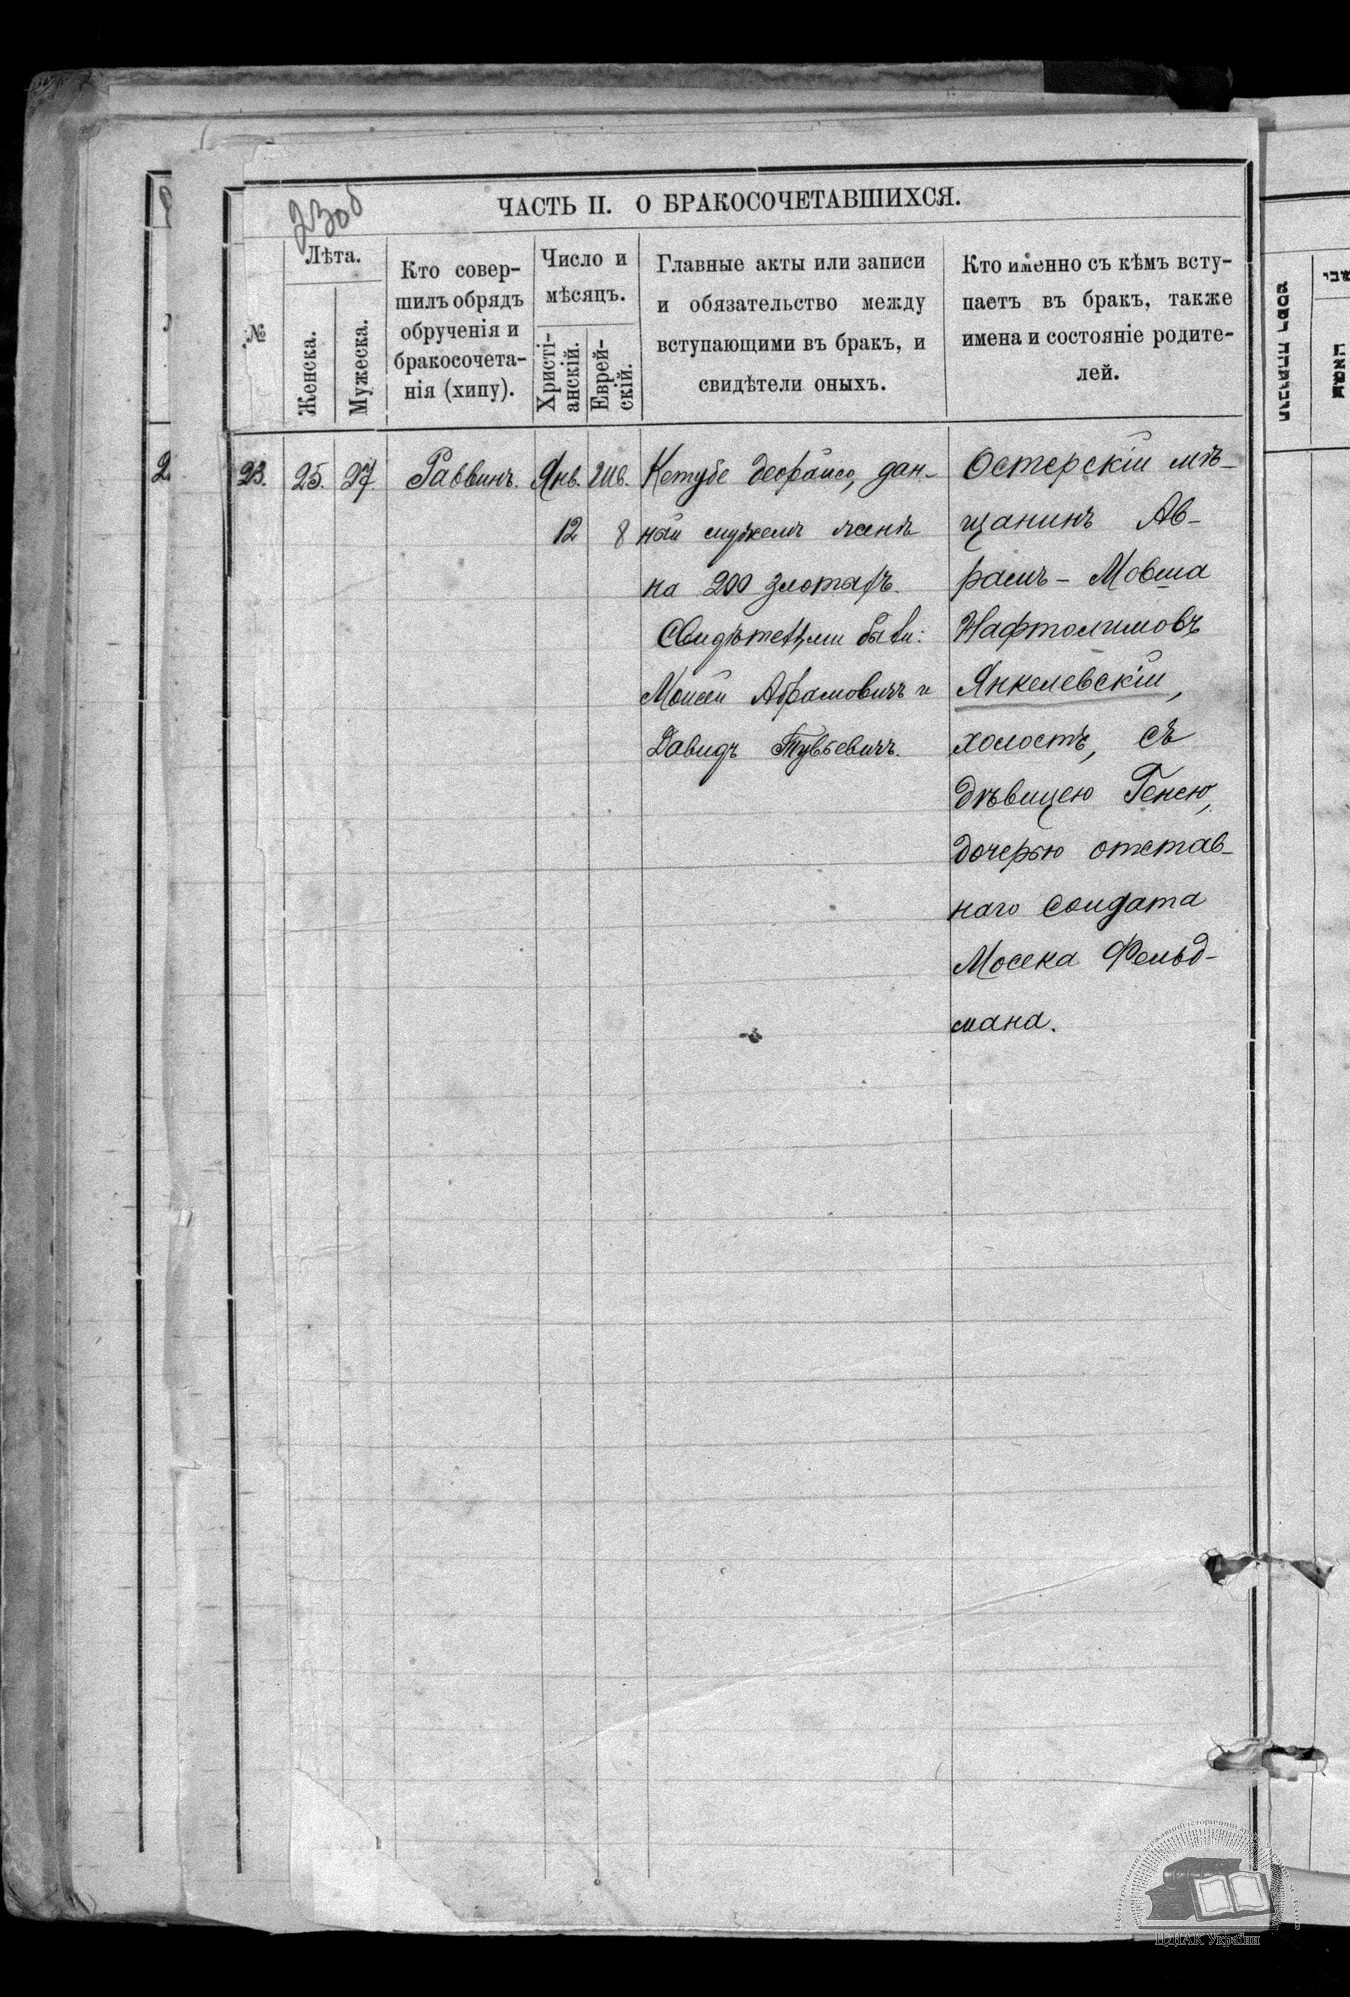 23об
ЧАСТЬ II. О БРАКОСОЧЕТАВШИХСЯ.
№
Лѣта.
Женска.
Мужеска.
Кто совер-
шилъ обрядъ
обрученія и
бракосочета-
нія (хипу).
Число и
мѣсяцъ.
Христі-
анскій.
Еврей-
скій.
Главные акты или записи
и обязательство между
вступающими въ брак, и
свидѣтели оныхъ.
Кто именно съ кѣмъ всту-
паетъ въ бракъ, также
имена и состояніе родите-
лей.
23.
25.
27.
Раввинъ.
Янв.
12
Шв.
8
Кетубе деорайсо, дан-
ный мужемъ женѣ
на 200 злотыхъ.
Свидѣтелями были:
Моисей Абрамовичъ и
Давидъ Тувьевичъ.
Остерскій мѣ-
щанинъ Ав-
рамъ - Мовша
Нафтолимовъ
Янкелевскій,
холостъ, съ
дѣвицею Генею,
дочерью отстав-
наго солдата
Мосека Фельд-
мана.
ЦДІАК України